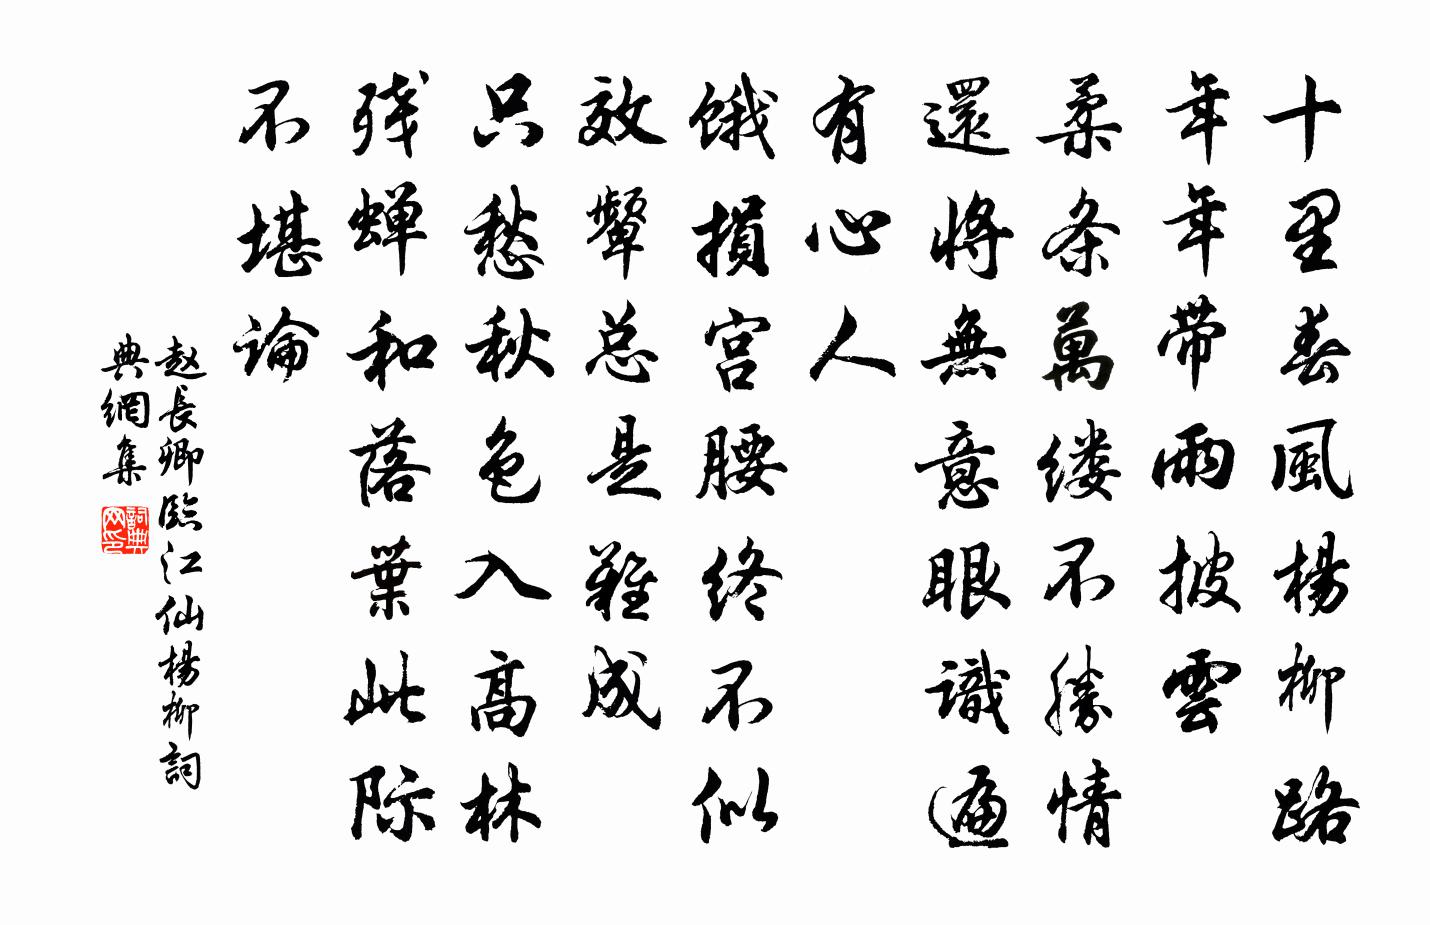 十里春風楊柳路
年年带雨披雲
柔条萬缕不勝情
還將無意眼識遍
有心人
饿損宫腰终不似
效顰总是難成
只愁秋色入高林
残蝉和落葉此际
不堪論
赵長卿臨江仙楊柳詞
典網集
詞典
网印